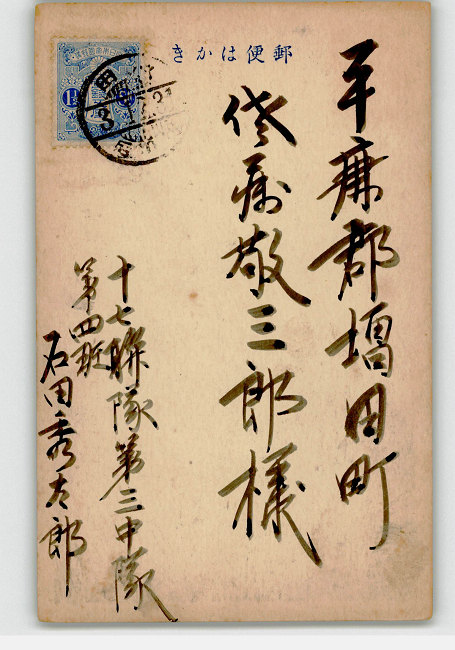 郵便はかき
平鹿郡増田町
敬三郎様
十七聯隊第三中隊
第四班
石田秀太郎